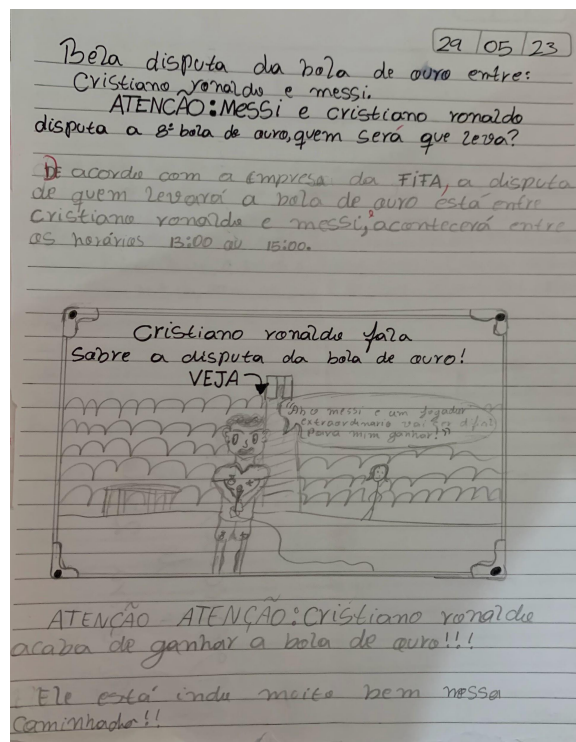 29 05 23
Bela disputa da bola de ouro entre:
Cristiano ronaldo e messi.
ATENCÃO: Messi e cristiano ronaldo
disputa a 8ª bola de ouro, quem será que leva?
De acordo com a empresa da FIFA, a disputa
de quem levará a bola de ouro está entre
Cristiano ronaldo e messi, acontecerá entre
os horários 13:00 ou 15:00.
Cristiano ronaldo fala
sobre a disputa da bola de ouro!
VEJA
"Ah o messi e um jogador
extraordinario vai ser
para mim ganhar!"
ATENÇÃO ATENÇÃO: Cristiano ronaldo
acaba de ganhar a bola de ouro!!!
Ele está indo muito bem nessa
caminhada!!